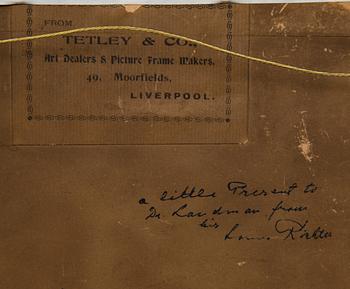 FROM
TETLEY & CO.,
Art Dealers & Picture Frame Makers,
49, Moorfields,
LIVERPOOL.
a little Present to
Dr. Landman from
his